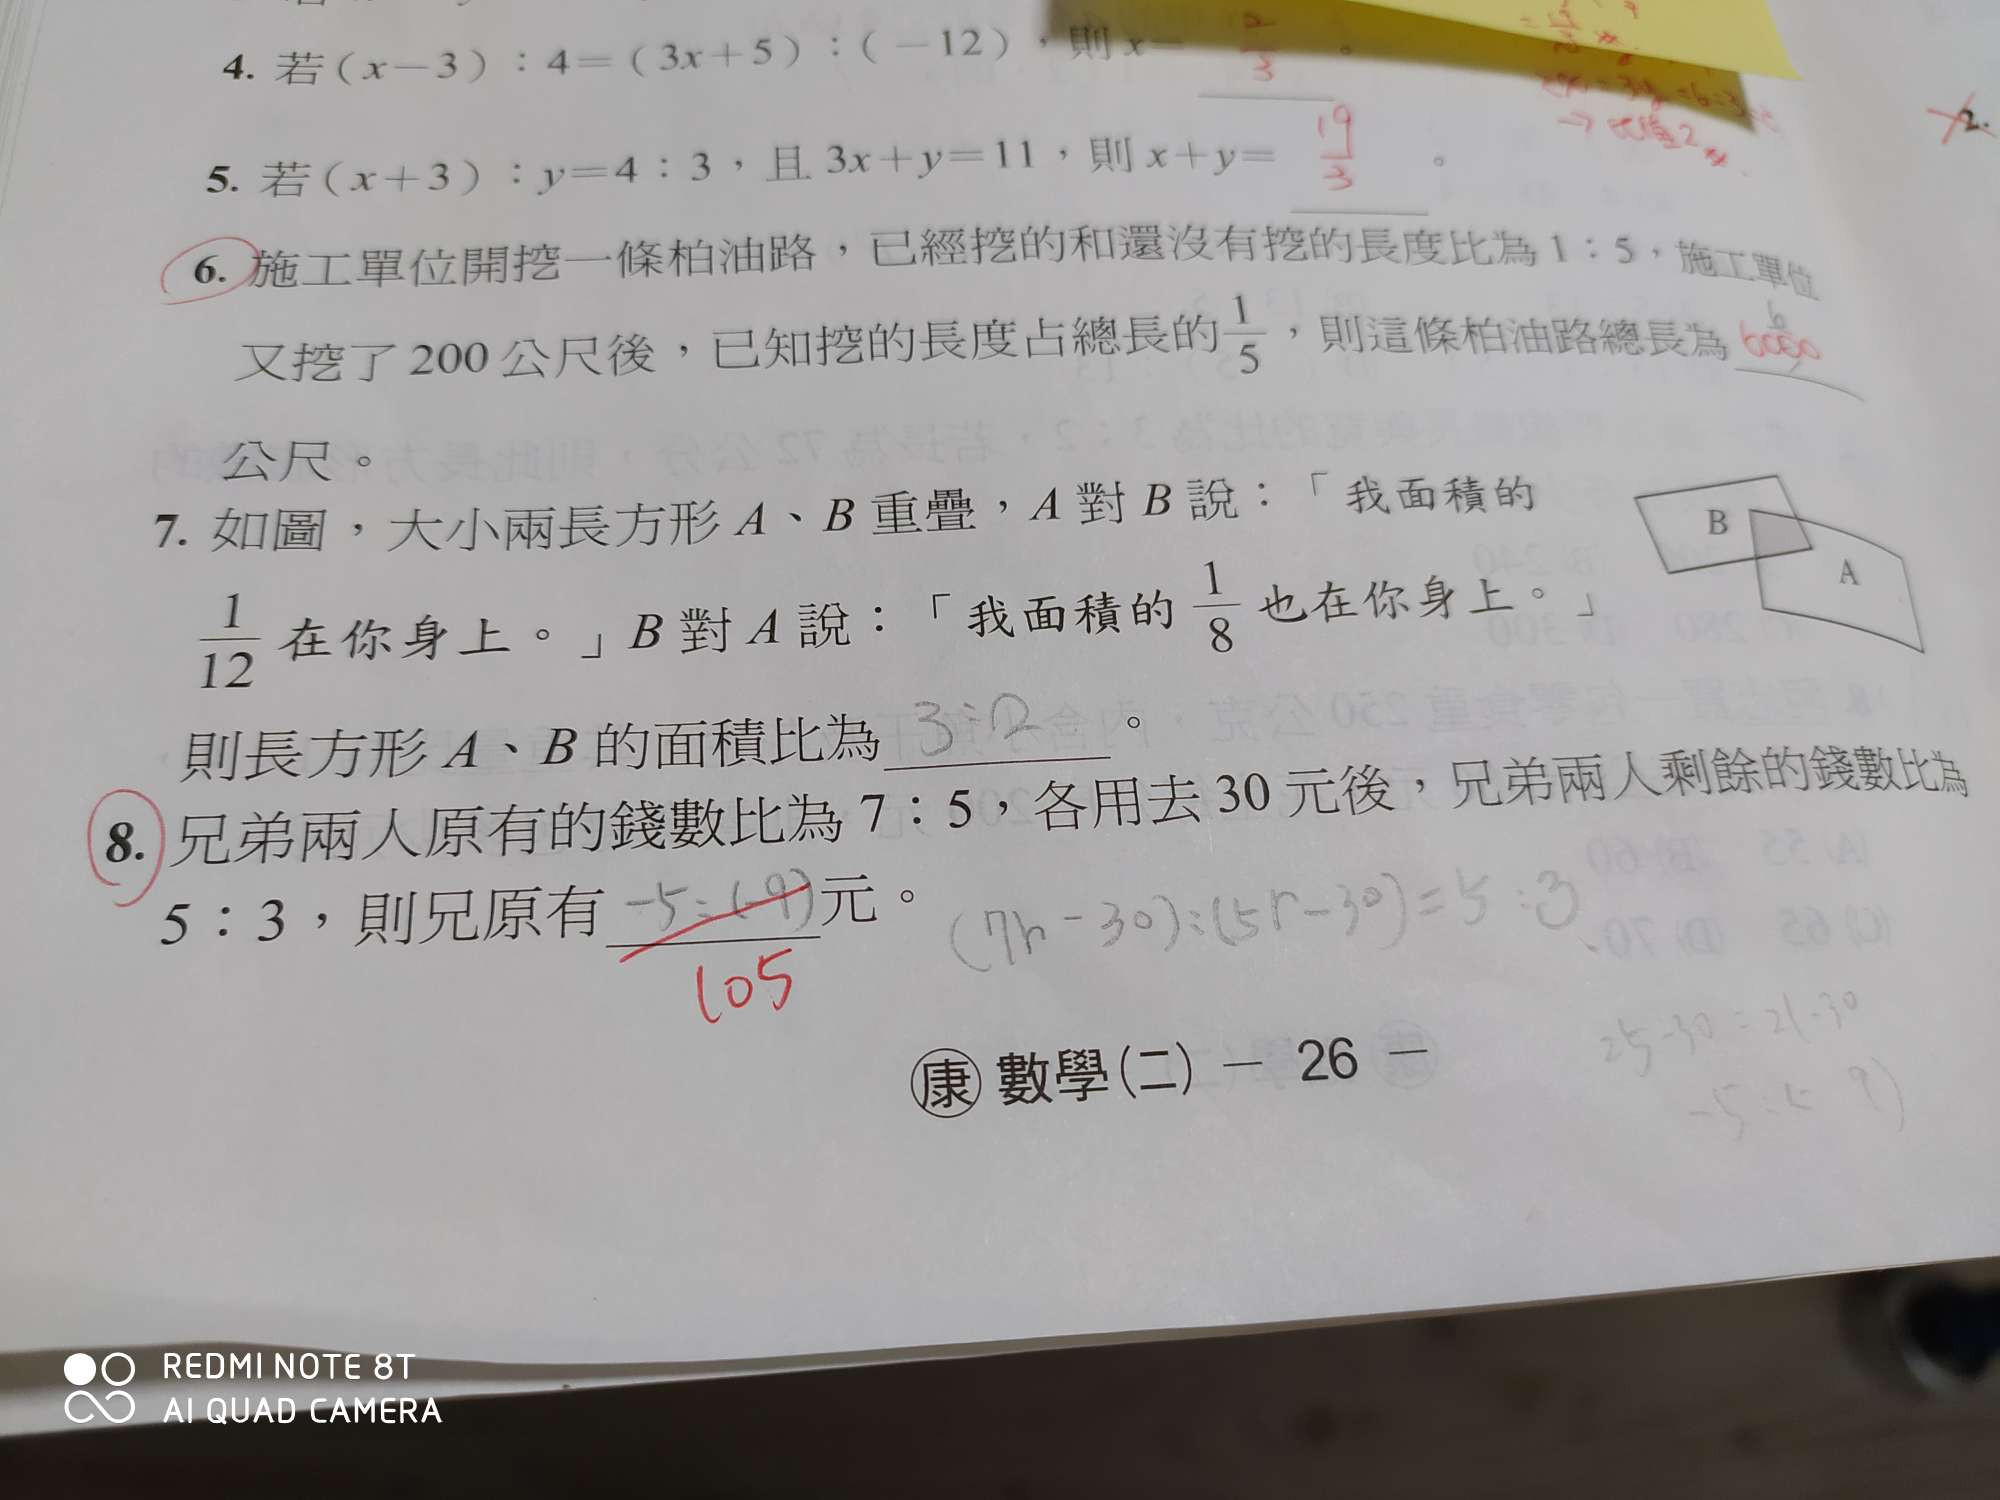 4. 若(x－3)：4＝(3x＋5)：(－12)，則 x＝
3
。
5. 若(x＋3)：y＝4：3，且 3x＋y＝11，則 x＋y＝ 19/3 。
6. 施工單位開挖一條柏油路，已經挖的和還沒有挖的長度比為 1：5，施工單位
又挖了 200 公尺後，已知挖的長度占總長的 1/5，則這條柏油路總長為
公尺。
7. 如圖，大小兩長方形 A、B 重疊，A 對 B 說：「我面積的
1/12 在你身上。」B 對 A 說：「我面積的 1/8 也在你身上。」
則長方形 A、B 的面積比為 3：2 。
B
A
8. 兄弟兩人原有的錢數比為 7：5，各用去 30 元後，兄弟兩人剩餘的錢數比為
5：3，則兄原有 -5：(-9) 元。
105
(7r-30)：(5r-30)=5：3
25-30=21-30
2.
康 數學(二) － 26 －
REDMI NOTE 8T
AI QUAD CAMERA